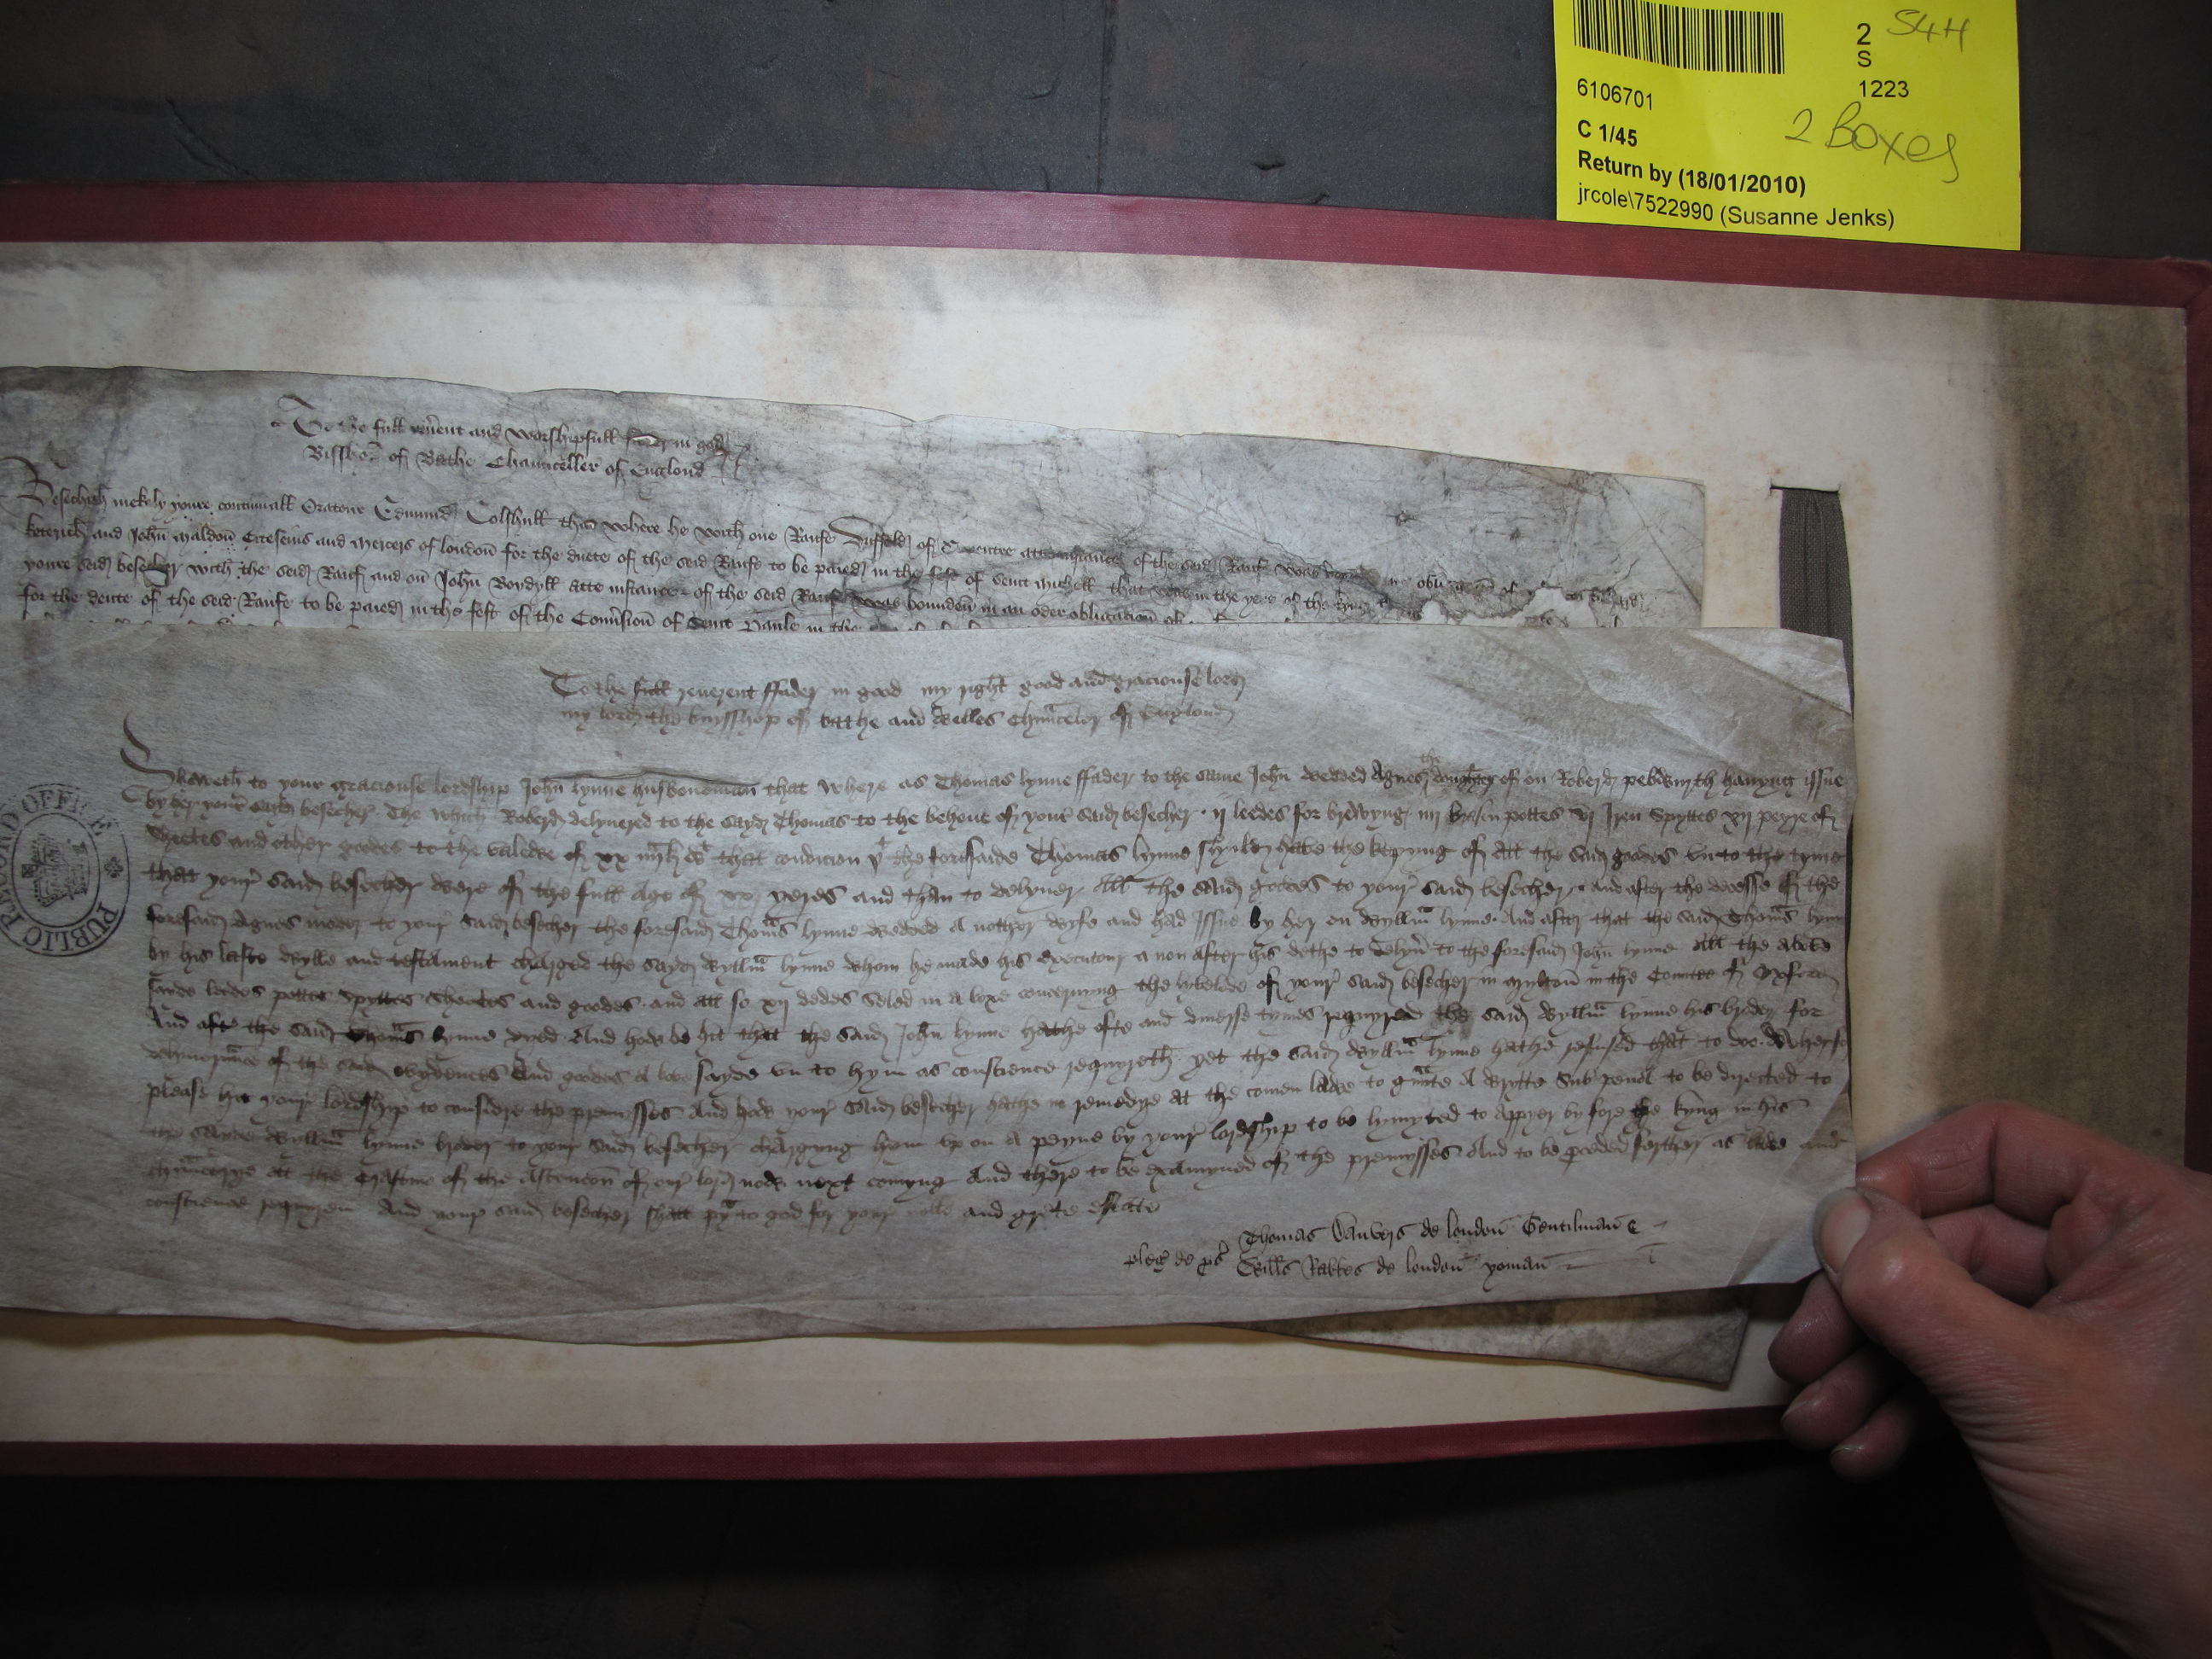 2 S4H
S
6106701
1223
C 1/45
2 Boxes
Return by (18/01/2010)
jrcole\7522990 (Susanne Jenks)
To the full reuerent and worshipfull fader in god
Bisshop of Bathe Chaunceller of Englond
Besechith mekely youre contynuall Oratour Edmund Colshull that where he with one Raufe of Couentre atte instaunce of the seid Raufe was
and John Maldon Citesens and mercers of london for the duete of the seid Raufe to be paied in the fest of seint that was in the yere of the
youre seid besecher with the seid Rauf and on John Boydyll atte instance of the seid Raufe was bounden in an oder obligacion of
for the dette of the seid Raufe to be paied in the fest of the Conuersion of Seint Paule in the
To the full reuerent ffader in good my right good and graciouse lord
my lord the bysshop of bathe and welles Chaunceler of Englond
Sheweth to your graciouse lordship John lynne husbondman that where as Thomas lynne ffader to the same John wedded Agnes the doughter of on Roberd hauyng issue
by her your said besecher The which Roberd delyuered to the sayd Thomas to the behoue of your said besecher ij leedes for brewyng iiij brasen pottes vj Iren Spyttes xij peyre of
Sheetes and other goodes to the valewe of xx mrk with that condicion that the forsaide Thomas lynne shuld haue the kepyng of all the said goodes vn to the tyme
that your said besecher were of the full age of yeres and than to delyuer All the said goodes to your said besecher and after the decesse of the
forsaid Agnes moder to your said besecher the forsaid Thomas lynne wedded A nother wyfe and had Issue by her on wyllm lynne And after that the said Thomas lynne
by his laste wylle and testament charged the sayd wyllm lynne whom he made his executour a non after his dethe to delyuer to the forsaid John lynne All the aboue
sayde leedes pottes Spyttes Sheetes and goodes and all so xij dedes seled in a boxe concernyng the lyvelode of your said besecher in mylton in the Countee of Oxford
And after the said Thomas lynne dyed And how be hit that the said John lynne hathe ofte and diuerse tymes requyred the said wyllm lynne his broder for
delyueraunce of the said evydences And goodes A boue sayde vn to hym as conscience requyreth yet the said wyllm lynne hathe refused that to do Wherfor
please hit your lordship to considre the premysses And how your said besecher hathe no remedye at the comen lawe to graunte A wrytte Sub pena to be directed to
the sayde wyllm lynne broder to your said besecher chargyng hym vp on A peyne by your lordship to be lymyted to Appyer by fore the kyng in his
chauncerye at the Crastine of the Ascencion of our lord now next comyng And there to be examyned of the premysses And to be proceded ferther as lawe and
conscience requyren And your said besecher shall pray to god for your noble and grete estate
pleg de pros Thomas Danvers de london Gentilman
Wills Rabtes de london yoman
PUBLIC RECORD OFFICE